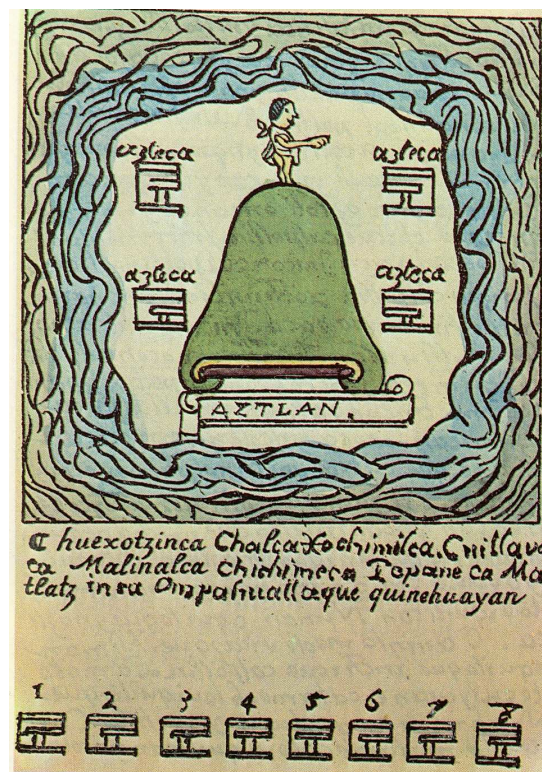 azteca azteca
azteca azteca
AZTLAN.
huexotzinca Chalca Xochimilca. Cuitlav
ca Malinalca Chichimeca Tepane ca Ma
tlatz inca Ompahuallaque quinehuayan
1 2 3 4 5 6 7 8